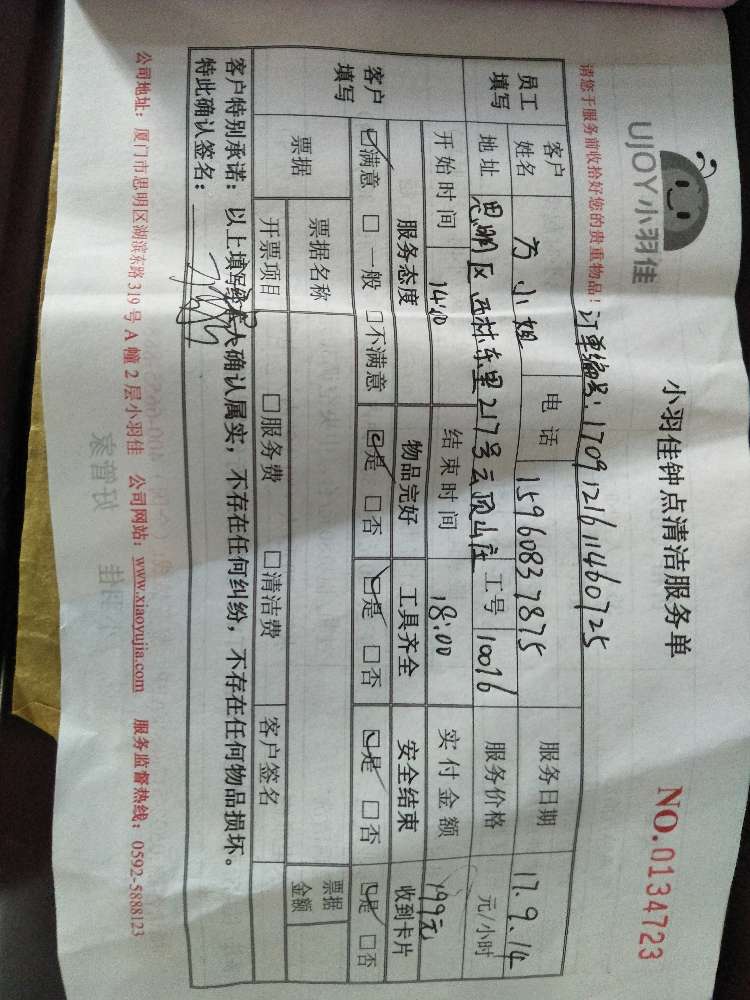 UJOY小羽佳
小羽佳钟点清洁服务单
NO.0134723
请您于服务前收拾好您的贵重物品！
订单编号：1709121611460725
员工填写 客户姓名 方小姐 电话 15960837875 服务日期 17.9.14
地址 思明区西林东里217号云顶山庄 工号 10016 服务价格 元/小时
开始时间 14:10 结束时间 18:00 实付金额 199元
客户填写 服务态度 物品完好 工具齐全 安全结束 收到卡片
☑满意 □一般 □不满意 ☑是 □否 ☑是 □否 ☑是 □否 ☑是 □否
票据 票据名称 票据金额
开票项目 □服务费 □清洁费 客户签名
客户特别承诺：以上填写经本人确认属实，不存在任何纠纷，不存在任何物品损坏。
特此确认签名：
公司地址：厦门市思明区湖滨东路319号A幢2层小羽佳 公司网站：www.xiaoyujia.com 服务监督热线：0592-5888123